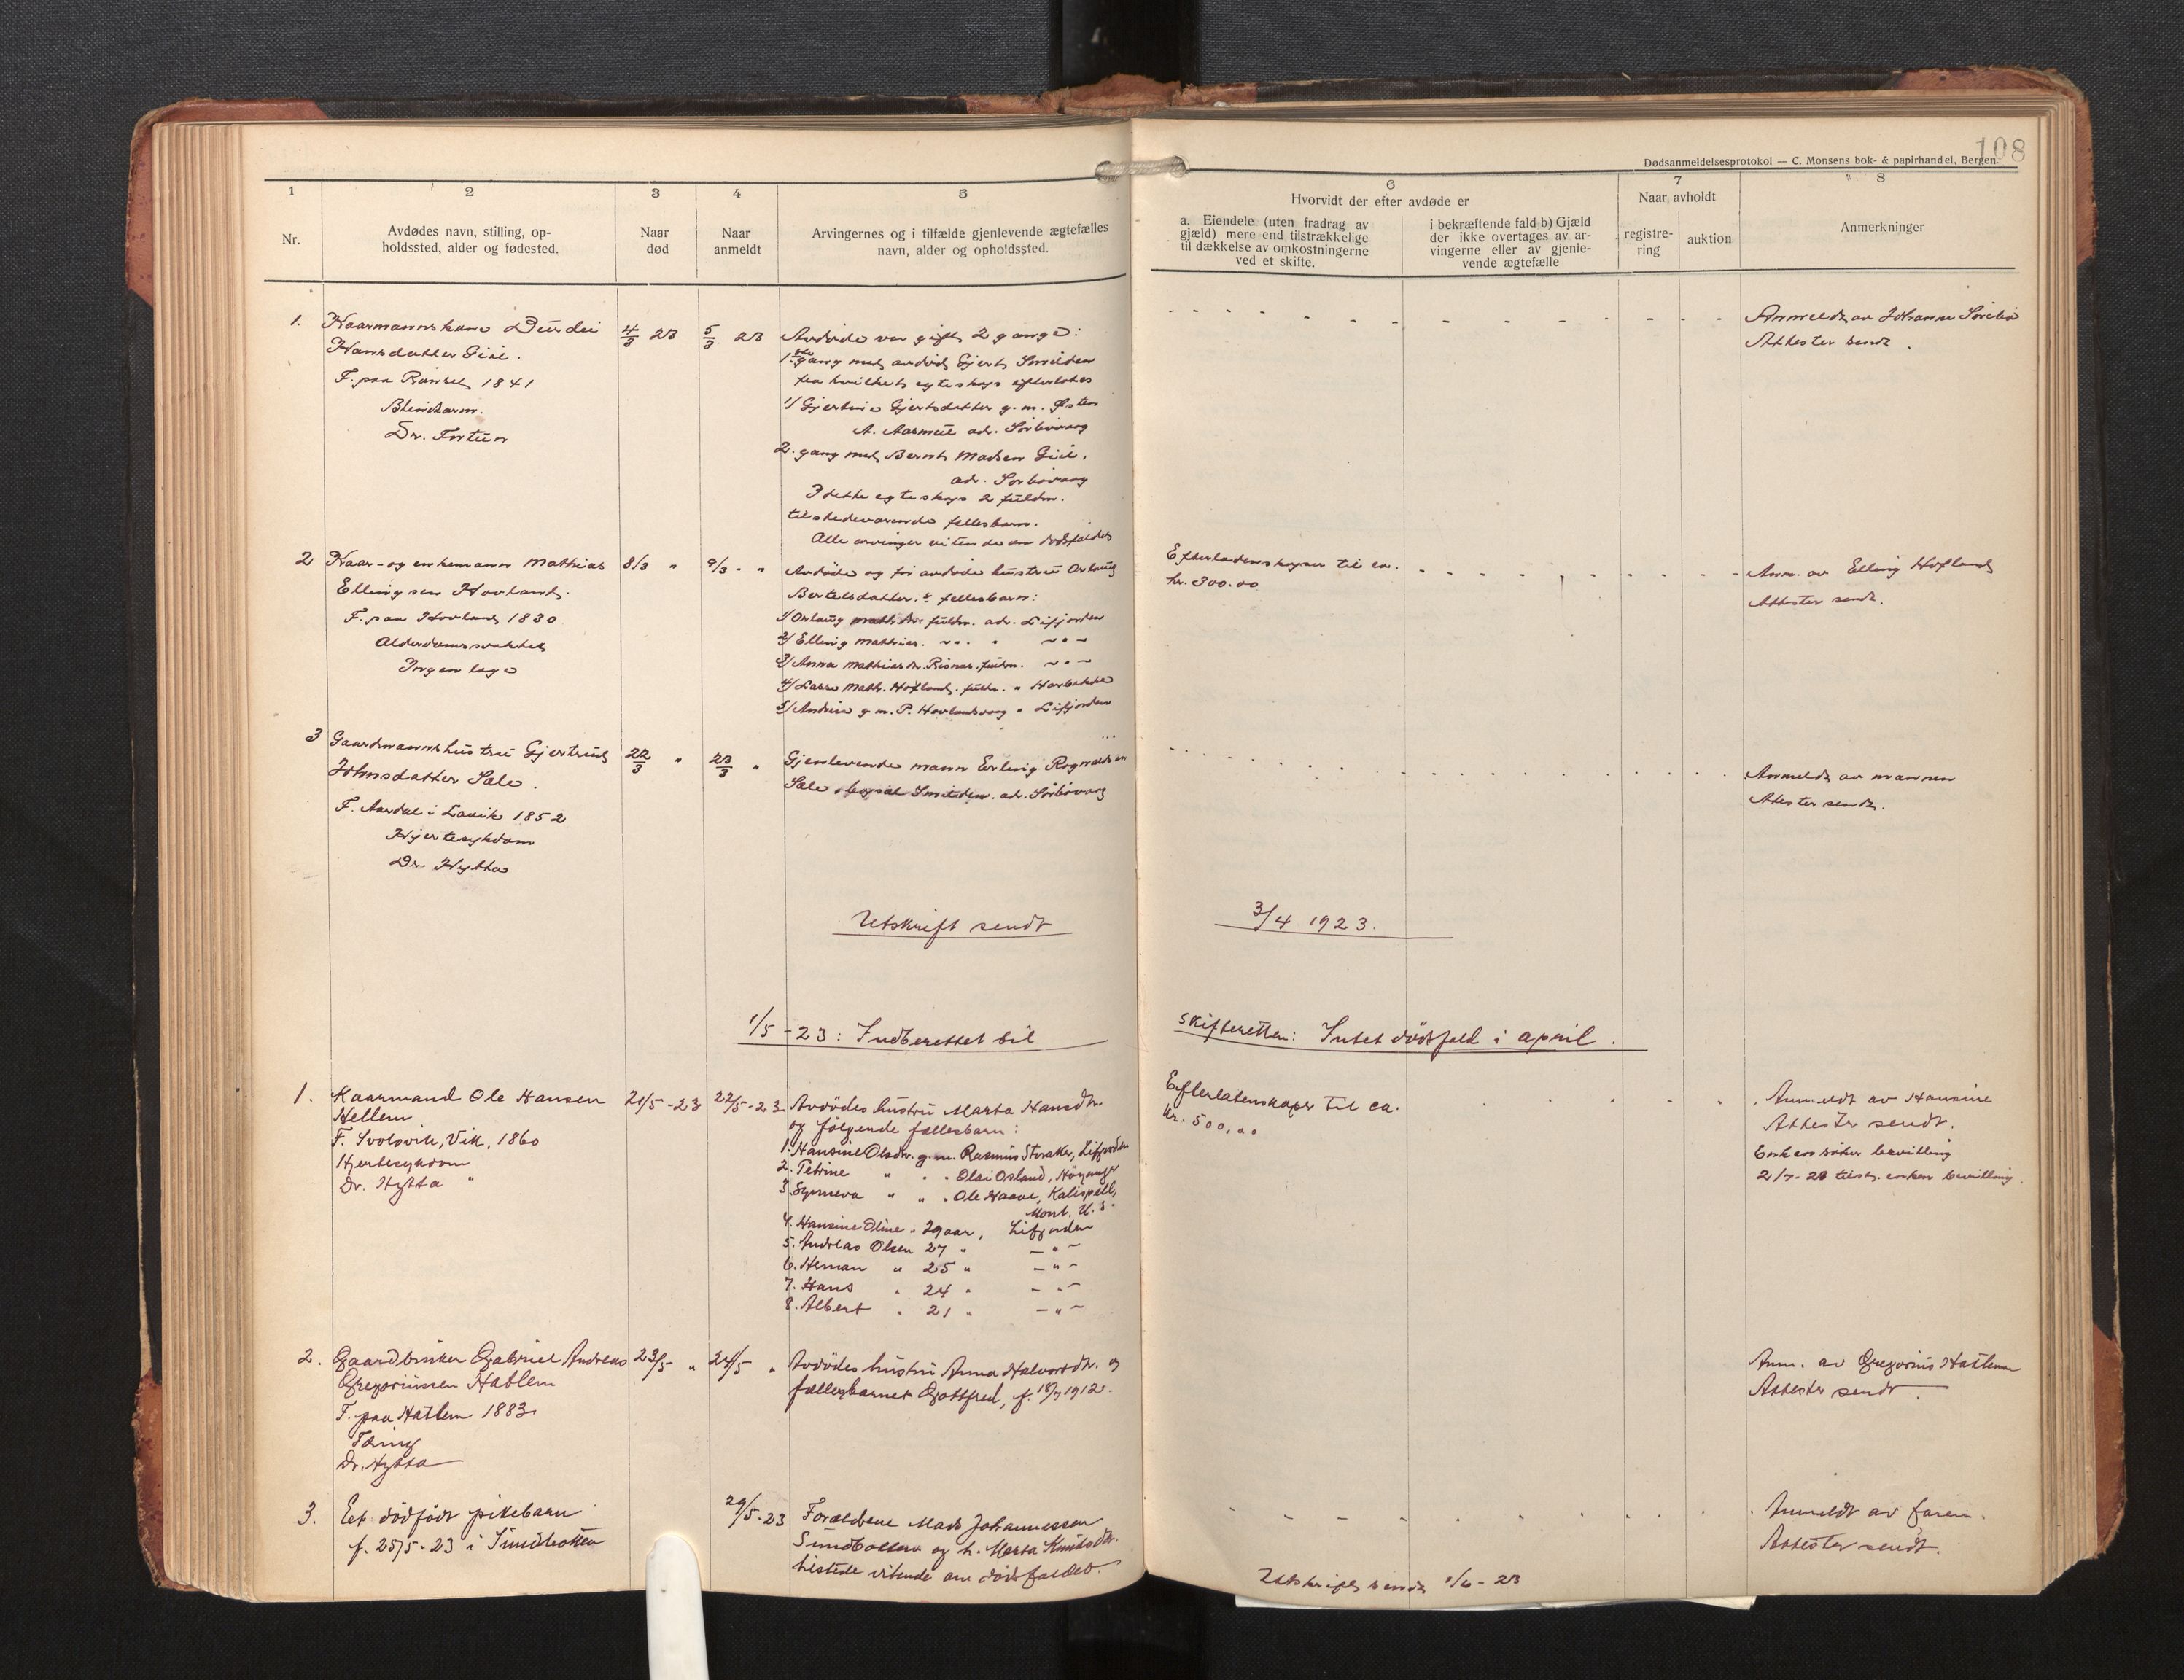 108
Dødsanmeldelsesprotokol — C. Monsens bok- & papirhandel, Bergen.
1
2
3
4
5
6
7
8
Nr.
Avdødes navn, stilling, op-
holdssted, alder og fødested.
Naar
død
Naar
anmeldt
Arvingernes og i tilfælde gjenlevende ægtefælles
navn, alder og opholdssted.
Hvorvidt der efter avdøde er
a. Eiendele (uten fradrag av
gjæld) mere end tilstrækkelige
til dækkelse av omkostningerne
ved et skifte.
i bekræftende fald b) Gjæld
der ikke overtages av ar-
vingerne eller av gjenle-
vende ægtefælle
Naar avholdt
registre-
ring
auktion
Anmerkninger
1. Kaarmannskone Durdei
Hansdatter Giil.
F. paa 1841
Blindtarm.
Dr. Fortun
4/3 23
5/3 23
Avdøde var gift 2 gange:
1ste gang med avdød Gjert Smilden
fra hvilket egteskap efterlates
1/ Gjertine Gjertsdatter g. m. Østen
A. adr. Sörbövaag
2. gang med Bernt Madsen Giil.
adr. Sörbövaag
I dette egteskap 2 fuldm.
tilstedeværende fellesbarn.
Alle arvinger vitende om dødsfaldet
Anmeldt av Johanne
Attester sendt.
2 Kaar- og enkemann Mathias
Ellingsen Hovland.
F. paa Hovland 1830
Alderdomssvakhet
Ingen læge
8/3 "
9/3 - "
Avdøde og før avdøde hustru Orlaug
Bertelsdatter. fellesbarn:
1/ Orlaug fuldm. adr. Lifjorden
2/ Elling Mathias. " "
3/ Anna Mathiasdtr. Risnes. fuldm. "
4/ Lasse Math. Hofland. fuldm. "
5/ Andrine g. m. P. Hovlandsvaag " Lifjorden
Efterladenskaper til ca.
kr. 300.00
Anm. av Elling Hofland
Attester sendt.
3 Gaardmannshustru Gjertrud
Johnsdatter Sæle.
F. Aardal i Lavik 1852
Hjertesykdom
Dr. Hytta
22/3 "
23/3 "
Gjenlevende mann Erling Rognaldsen
Sæle, adr. Sörbövaag
Anmeldt av mannen
Attester sendt.
Utskrift sendt 3/4 1923.
1/5 - 23: Indberettet til skifteretten: Intet dödsfald i april.
1. Kaarmand Ole Hansen
Hellem
F. Svolsvik, Vik, 1860
Hjertesykdom
Dr. Hytta "
21/5 - 23
22/5 - 23
Avdödes hustru Marta Hansdtr.
og følgende fællesbarn:
1. Hansine Olsdtr. g. m. Rasmus Storaker, Lifjorden
2. Petrine " " Olai Osland, Höyanger
3. Synneva " " " Ole Haave, Kalispell,
Mont. U. S.
4. Hansine Oline " 29 aar, Lifjorden
5. Andreas Olsen 27 " — " —
6. Herman " 25 " — " —
7. Hans " 24 " — " —
8. Albert " 21 " — " —
Efterlatenskaper til ca.
kr. 500,00
Anmeldt av Hansine
Attester sendt.
Enken söker bevilling
2/7 - 23 tilst. enken bevilling.
2. Gaardbruker Gabriel Andreas
Gregoriussen Hatlem
F. paa Hatlem 1883
Tæring
Dr. Hytta
23/5 "
24/5 "
Avdödes hustru Anna Halvorsdtr. og
fællesbarnet Gottfred, f. 18/7 1912.
Anm. av Gregorius Hatlem
Attester sendt.
3. Et dödfödt pikebarn
f. 25/5 - 23 i Sundbotten
29/5 - 23
Forældrene Mads Johannessen
Sundbotten og h. Marta Knutsdtr.
histede vitende om dödsfaldet.
Anmeldt av faren.
Attester sendt.
Utskrift sendt 1/6 - 23